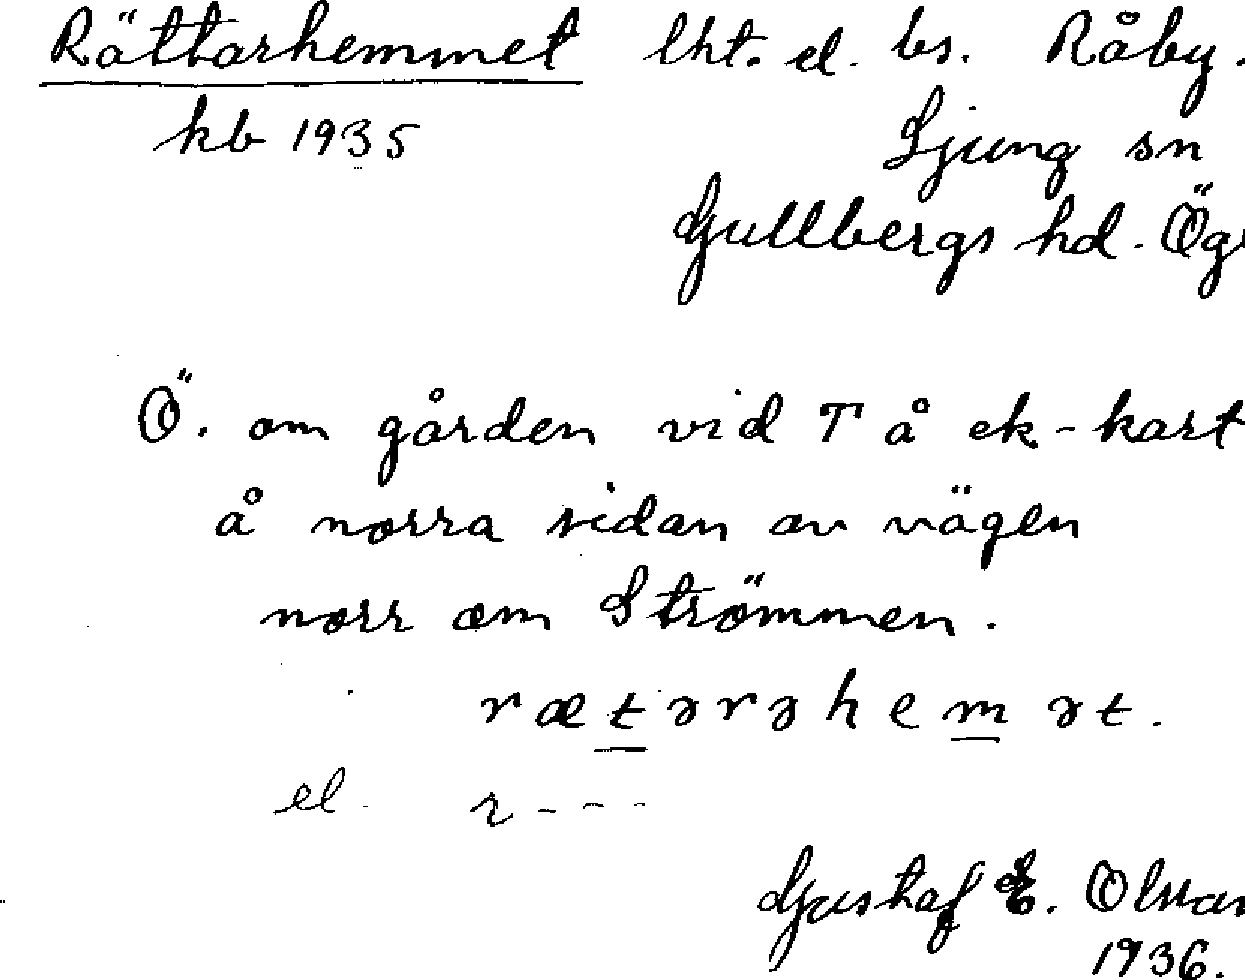 Rättarhemmet lht. el. bs. Råby.
kb 1935
Ljung sn
Gullbergs hd. Ög
Ö. om gården vid T å ek-kart
å norra sidan av vägen
norr om Strömmen.
rætərəhemət.
el. r - - -
Gustaf E.
1936.